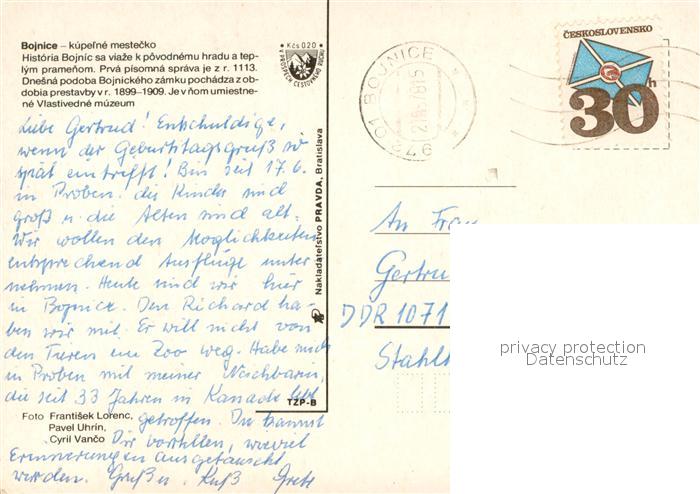 Bojnice – kúpeľné mestečko
História Bojníc sa viaže k pôvodnému hradu a tep-
lým prameňom. Prvá písomná správa je z r. 1113.
Dnešná podoba Bojnického zámku pochádza z ob-
dobia prestavby v r. 1899–1909. Je v ňom umiestne-
né Vlastivedné múzeum
Kčs 0,20
Liebe Gertrud! Entschuldige,
wenn der Geburtstagsgruß so
spät eintrifft! Bin seit 17.6.
in Proben. die Kinder sind
groß u. die Alten sind alt.
Wir wollen den Möglichkeiten
entsprechend Ausflüge unter
nehmen. Heute sind wir hier
in Bojnice. Den Richard ha-
ben wir mit. Er will nicht von
den Tieren im Zoo weg. Habe mich
in Proben mit meiner Nachbarin,
die seit 33 Jahren in Kanada lebt
getroffen. Du kannst
Dir vorstellen, wieviel
Erinnerungen ausgetauscht
werden. Gruß u. Kuß Grete
Foto František Lorenc,
Pavel Uhrín,
Cyril Vančo
TZP-B
Nakladateľstvo PRAVDA, Bratislava
BOJNICE
ČESKOSLOVENSKO
30h
An Frau
Gertru
DDR 1071
Stahl
privacy protection
Datenschutz